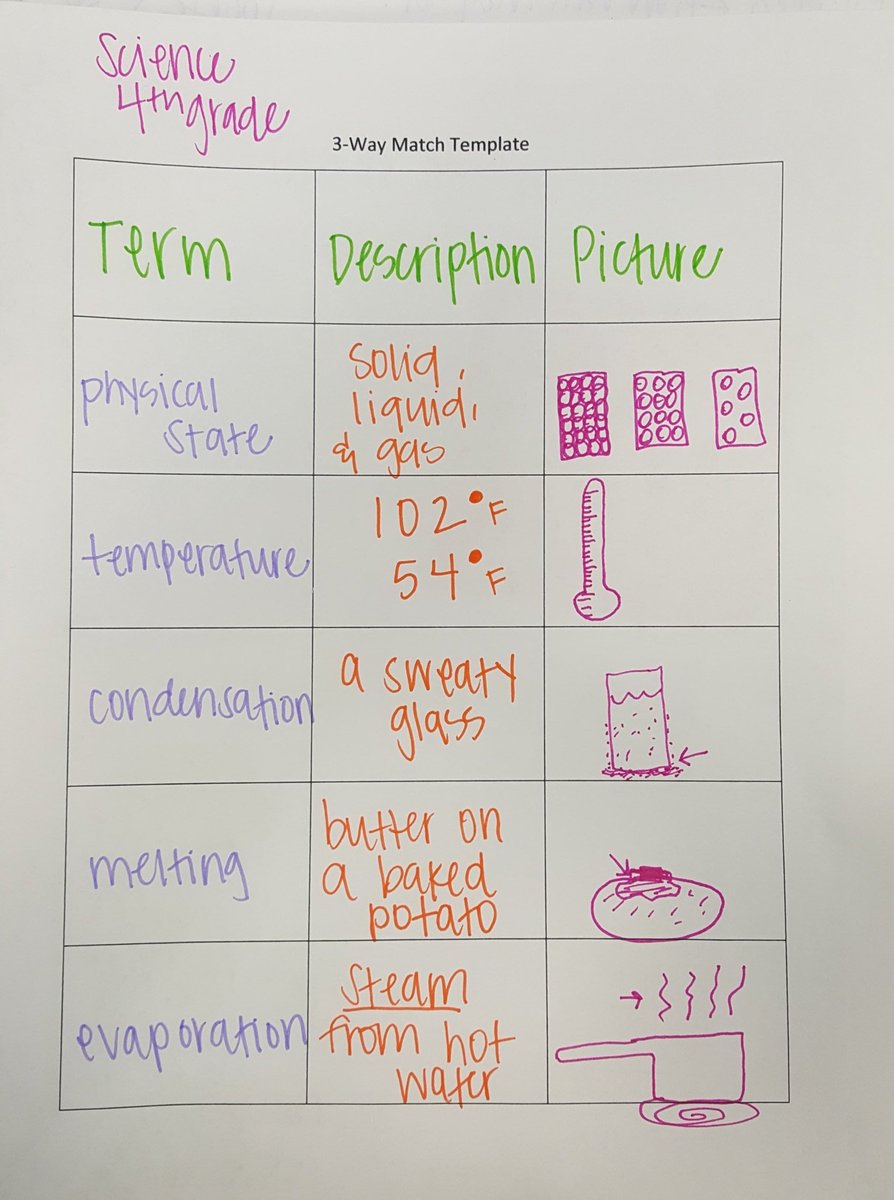 Science
4th grade
3-Way Match Template
Term
Description
Picture
physical
state
solid,
liquid,
& gas
temperature
102°F
54°F
condensation
a sweaty
glass
melting
butter on
a baked
potato
evaporation
steam
from hot
water